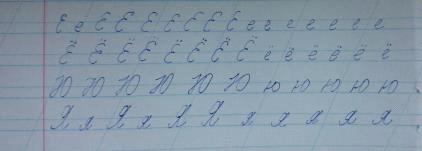 Е е Е Е Е Е Е Е Е е е е е е е е
Ё Ё Ё Ё Ё Ё Ё Ё ё ё ё ё ё ё
Ю Ю Ю Ю Ю Ю ю ю ю ю ю
Я я Я я Я Я я я я я я